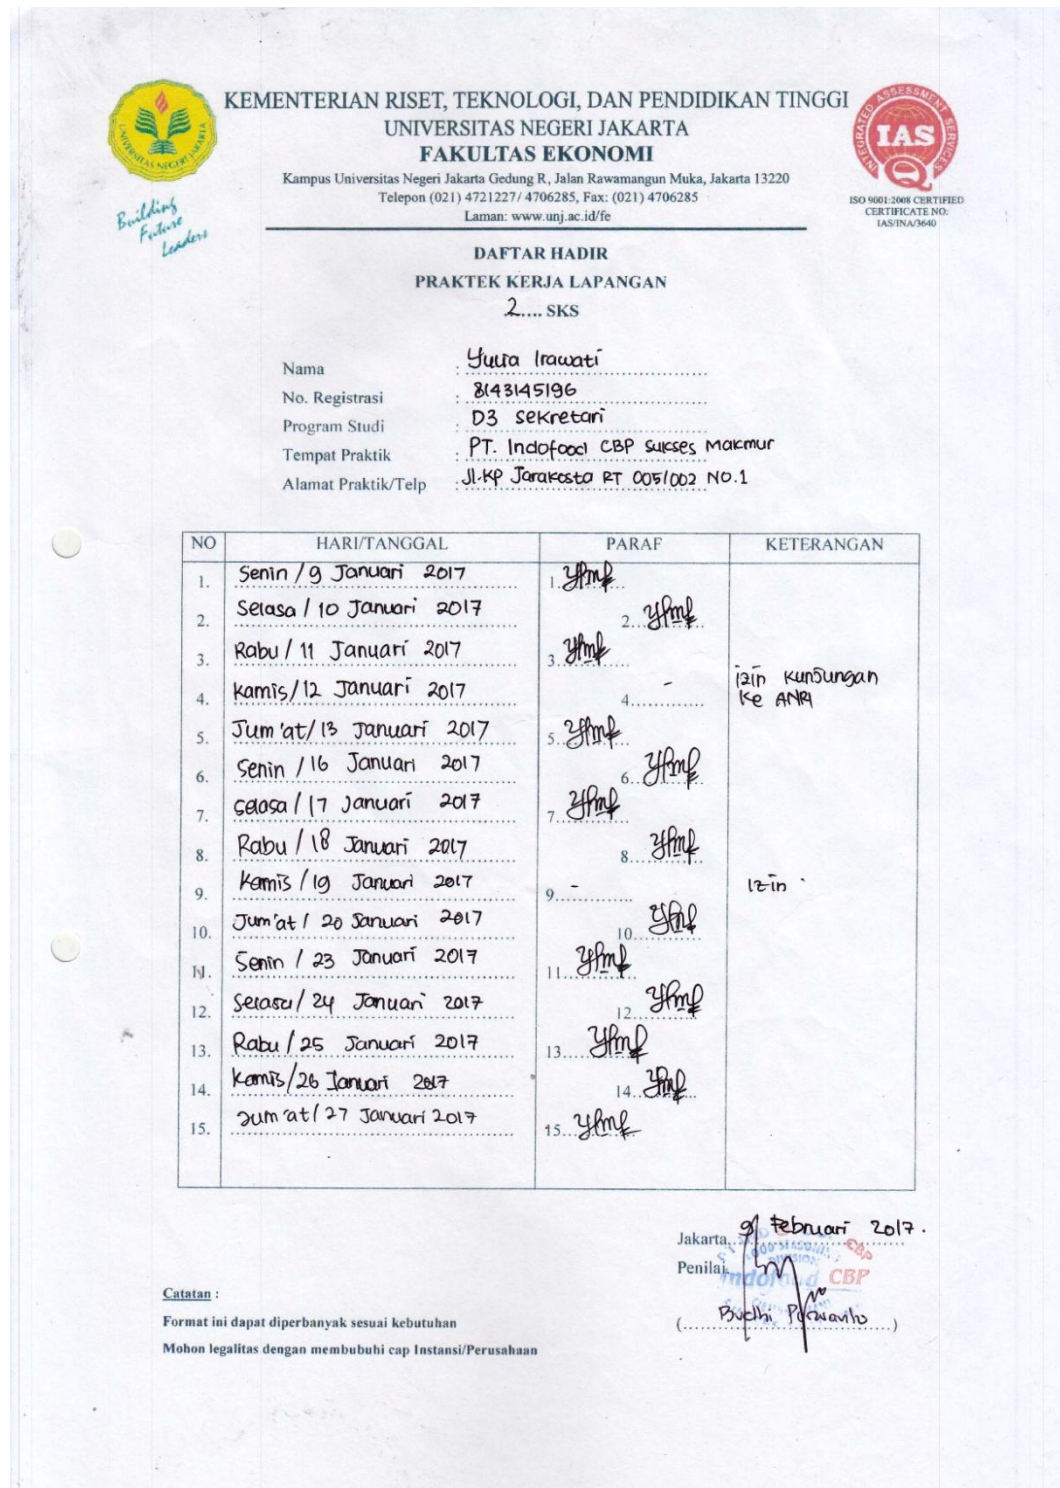 KEMENTERIAN RISET, TEKNOLOGI, DAN PENDIDIKAN TINGGI
UNIVERSITAS NEGERI JAKARTA
FAKULTAS EKONOMI
Kampus Universitas Negeri Jakarta Gedung R, Jalan Rawamangun Muka, Jakarta 13220
Telepon (021) 4721227/ 4706285, Fax: (021) 4706285
Laman: www.unj.ac.id/fe
UNIVERSITAS NEGERI JAKARTA
Building
Future
Leaders
INTEGRATED ASSESSMENT SERVICES
IAS
ISO 9001:2008 CERTIFIED
CERTIFICATE NO:
IAS/INA/3640
DAFTAR HADIR
PRAKTEK KERJA LAPANGAN
2.... SKS
Nama : Yulia Irawati
No. Registrasi : 8143145196
Program Studi : D3 Sekretari
Tempat Praktik : PT. Indofood CBP Sukses Makmur
Alamat Praktik/Telp : Jl.KP Jarakosta RT 005/002 NO.1
NO HARI/TANGGAL PARAF KETERANGAN
1. Senin / 9 Januari 2017 1.
2. Selasa / 10 Januari 2017 2.
3. Rabu / 11 Januari 2017 3.
4. Kamis / 12 Januari 2017 4. - izin kunjungan
ke ANRI
5. Jum'at / 13 Januari 2017 5.
6. Senin / 16 Januari 2017 6.
7. Selasa / 17 Januari 2017 7.
8. Rabu / 18 Januari 2017 8.
9. Kamis / 19 Januari 2017 9. - Izin
10. Jum'at / 20 Januari 2017 10.
11. Senin / 23 Januari 2017 11.
12. Selasa / 24 Januari 2017 12.
13. Rabu / 25 Januari 2017 13.
14. Kamis / 26 Januari 2017 14.
15. Jum'at / 27 Januari 2017 15.
Jakarta, 9 Februari 2017.
Penilai,
Indofood CBP
(Budhi Purwanto)
Catatan :
Format ini dapat diperbanyak sesuai kebutuhan
Mohon legalitas dengan membubuhi cap Instansi/Perusahaan